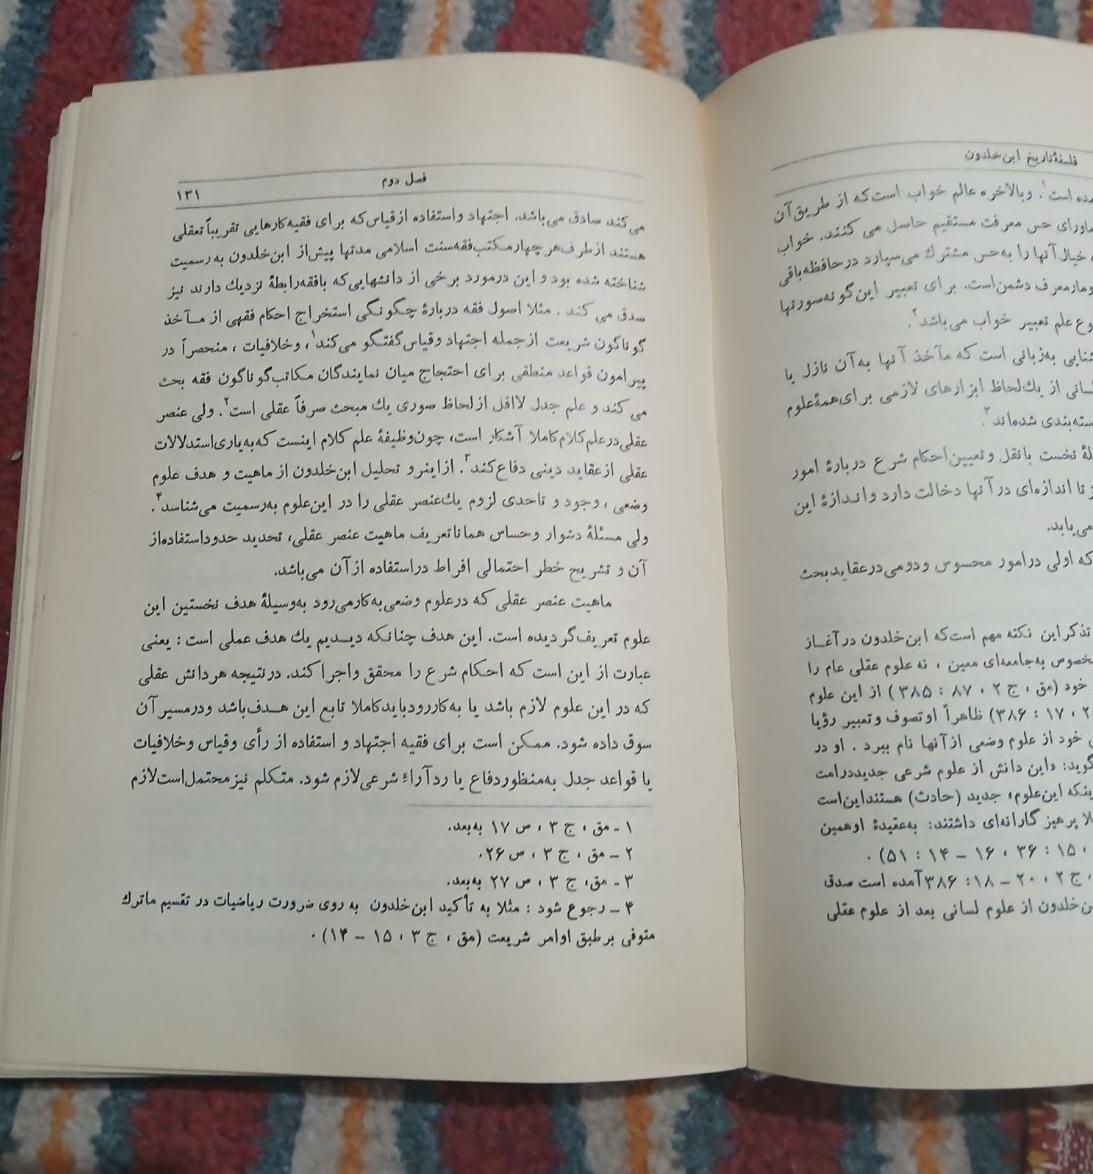 فلسفهٔ تاریخ ابن خلدون
مده است۱. وبالاخره عالم خواب است که از طریق آن
ماورای حس معرفت مستقیم حاصل می کنند. خواب
خیال آنها را به حس مشترك می سپارد در حافظه باقی
دشمن است. برای تعبیر این گونه صورتها
وع علم تعبیر خواب می باشد۲.
شنایی به زبانی است که مآخذ آنها به آن نازل یا
سانی از یك لحاظ ابزارهای لازمی برای همهٔ علوم
سته بندی شده اند۳.
لهٔ نخست با نقل و تعیین احکام شرع دربارهٔ امور
ز تا اندازه ای در آنها دخالت دارد و اندازهٔ این
می یابد.
که اولی در امور محسوس و دومی در عقاید بحث
تذکر این نکته مهم است که ابن خلدون در آغاز
خصوص به جامعه ای معین ، نه علوم عقلی عام را
خود (مق ، ج ۲ ، ۸۷ : ۳۸۵) از این علوم
۲ ، ۱۷ : ۳۸۶) ظاهراً او تصوف و تعبیر رؤیا
ی خود از علوم وضعی از آنها نام ببرد . او در
گوید: «این دانش از علوم شرعی جدید در امت
ینکه این علوم، جدید (حادث) هستند این است
لا پرهیز گارانه ای داشتند: به عقیدهٔ او همین
، ۱۵ : ۳۶ ، ۱۶ – ۱۴ : ۵۱) .
، ج ۲ ، ۲۰ – ۱۸: ۳۸۶ آمده است صدق
بن خلدون از علوم لسانی بعد از علوم عقلی
فصل دوم ۱۳۱
می کند صادق می باشد. اجتهاد و استفاده از قیاس که برای فقیه کارهایی تقریباً تعقلی
هستند از طرف هر چهار مکتب فقه سنت اسلامی مدتها پیش از ابن خلدون به رسمیت
شناخته شده بود و این درمورد برخی از دانشهایی که بافقه رابطهٔ نزدیك دارند نیز
صدق می کند . مثلا اصول فقه دربارهٔ چگونگی استخراج احکام فقهی از مـآخذ
گوناگون شریعت از جمله اجتهاد و قیاس گفتگو می کند۱، و خلافیات ، منحصراً در
پیرامون قواعد منطقی برای احتجاج میان نمایندگان مکاتب گوناگون فقه بحث
می کند و علم جدل لااقل از لحاظ صوری یك مبحث صرفاً عقلی است۲. ولی عنصر
عقلی در علم کلام کاملا آشکار است، چون وظیفهٔ علم کلام اینست که به یاری استدلالات
عقلی از عقاید دینی دفاع کند۳. از اینرو تحلیل ابن خلدون از ماهیت و هدف علوم
وضعی ، وجود و تاحدی لزوم یك عنصر عقلی را در این علوم به رسمیت می شناسد۴.
ولی مسئلهٔ دشوار و حساس همانا تعریف ماهیت عنصر عقلی، تحدید حدود استفاده از
آن و تشریح خطر احتمالی افراط در استفاده از آن می باشد.
ماهیت عنصر عقلی که در علوم وضعی به کار می رود به وسیلهٔ هدف نخستین این
علوم تعریف گردیده است. این هدف چنانکه دیـدیم یك هدف عملی است : یعنی
عبارت از این است که احکام شرع را محقق و اجرا کند. درنتیجه هر دانش عقلی
که در این علوم لازم باشد یا به کار رود باید کاملا تابع این هـدف باشد و در مسیر آن
سوق داده شود. ممکن است برای فقیه اجتهاد و استفاده از رأی و قیاس و خلافیات
یا قواعد جدل به منظور دفاع یا رد آراء شرعی لازم شود. متکلم نیز محتمل است لازم
۱ - مق ، ج ۳ ، ص ۱۷ به بعد.
۲ – مق ، ج ۳ ، ص ۲۶.
۳ - مق، ج ۳ ، ص ۲۷ به بعد.
۴ – رجوع شود : مثلا به تأکید ابن خلدون به روی ضرورت ریاضیات در تقسیم ماترك
متوفی بر طبق اوامر شریعت (مق ، ج ۳ ، ۱۵ – ۱۴) .